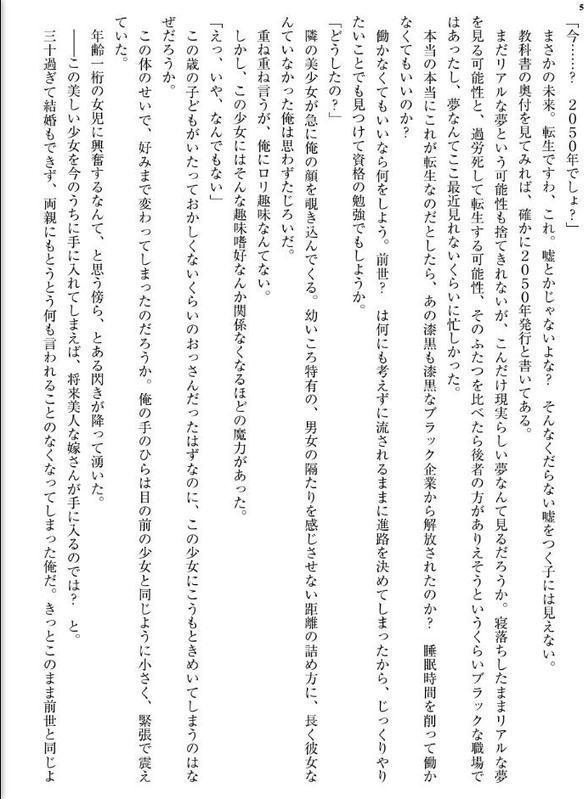 5
「今……？　2050年でしょ？」
まさかの未来。転生ですわ、これ。嘘とかじゃないよな？　そんなくだらない嘘をつく子には見えない。
教科書の奥付を見てみれば、確かに2050年発行と書いてある。
まだリアルな夢という可能性も捨てきれないが、こんだけ現実らしい夢なんて見るだろうか。寝落ちしたままリアルな夢
を見る可能性と、過労死して転生する可能性、そのふたつを比べたら後者の方がありえそうというくらいブラックな職場で
はあったし、夢なんてここ最近見れないくらいに忙しかった。
本当の本当にこれが転生なのだとしたら、あの漆黒も漆黒なブラック企業から解放されたのか？　睡眠時間を削って働か
ないでいいのか？
働かなくてもいいなら何をしよう。前世？　は何にも考えずに流されるままに進路を決めてしまったから、じっくりやり
たいことでも見つけて資格の勉強でもしようか。
「どうしたの？」
隣の美少女が急に俺の顔を覗き込んでくる。幼いころ特有の、男女の隔たりを感じさせない距離の詰め方に、長く彼女な
んていなかった俺は思わずたじろいだ。
重ね重ね言うが、俺にロリ趣味なんてない。
しかし、この少女にはそんな趣味嗜好なんか関係なくなるほどの魔力があった。
「えっ、いや、なんでもない」
この歳の子どもがいたっておかしくないくらいのおっさんだったはずなのに、この少女にこうもときめいてしまうのはな
ぜだろうか。
この体のせいで、好みまで変わってしまったのだろうか。俺の手のひらは目の前の少女と同じように小さく、緊張で震え
ていた。
年齢一桁の女児に興奮するなんて、と思う傍ら、とある閃きが降って湧いた。
――この美しい少女を今のうちに手に入れてしまえば、将来美人な嫁さんが手に入るのでは？　と。
三十過ぎて結婚もできず、両親にもとうとう何も言われることのなくなってしまった俺だ。きっとこのまま前世と同じよ